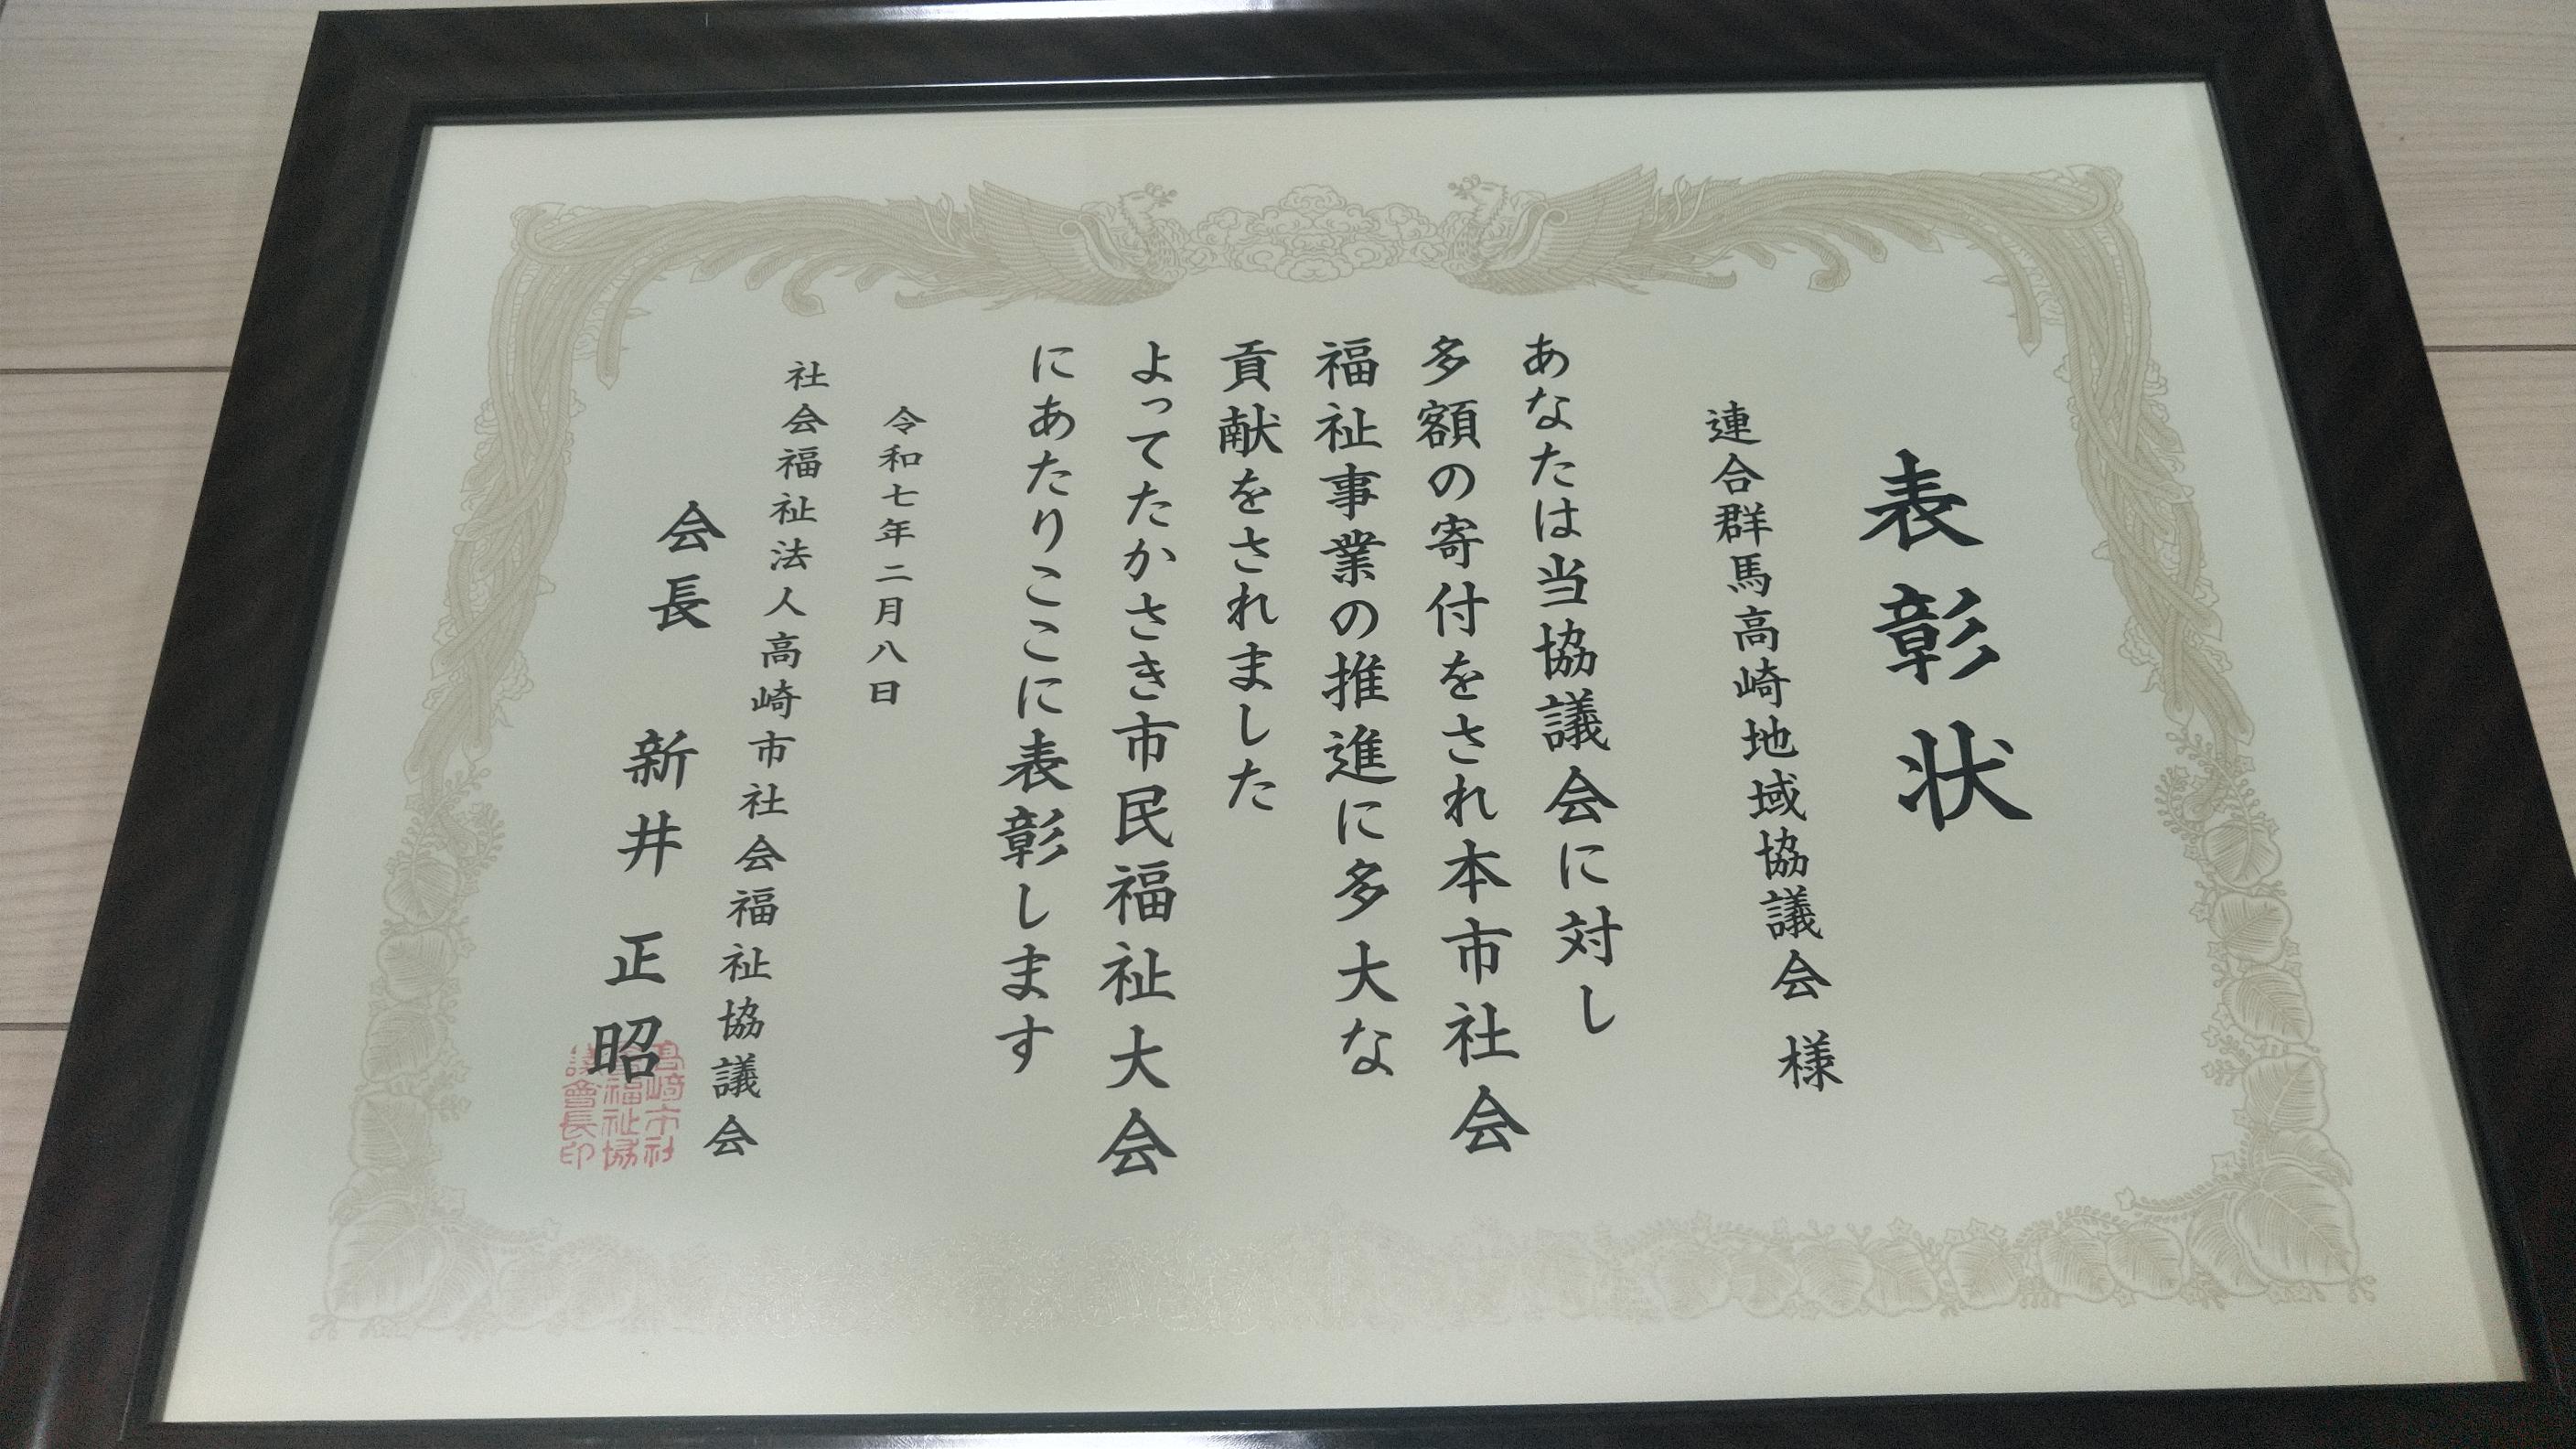 表彰状
連合群馬高崎地域協議会 様
あなたは当協議会に対し
多額の寄付をされ本市社会
福祉事業の推進に多大な
貢献をされました
よってたかさき市民福祉大会
にあたりここに表彰します
令和七年二月八日
社会福祉法人高崎市社会福祉協議会
会長 新井正昭
高崎市社
会福祉協
議會長印